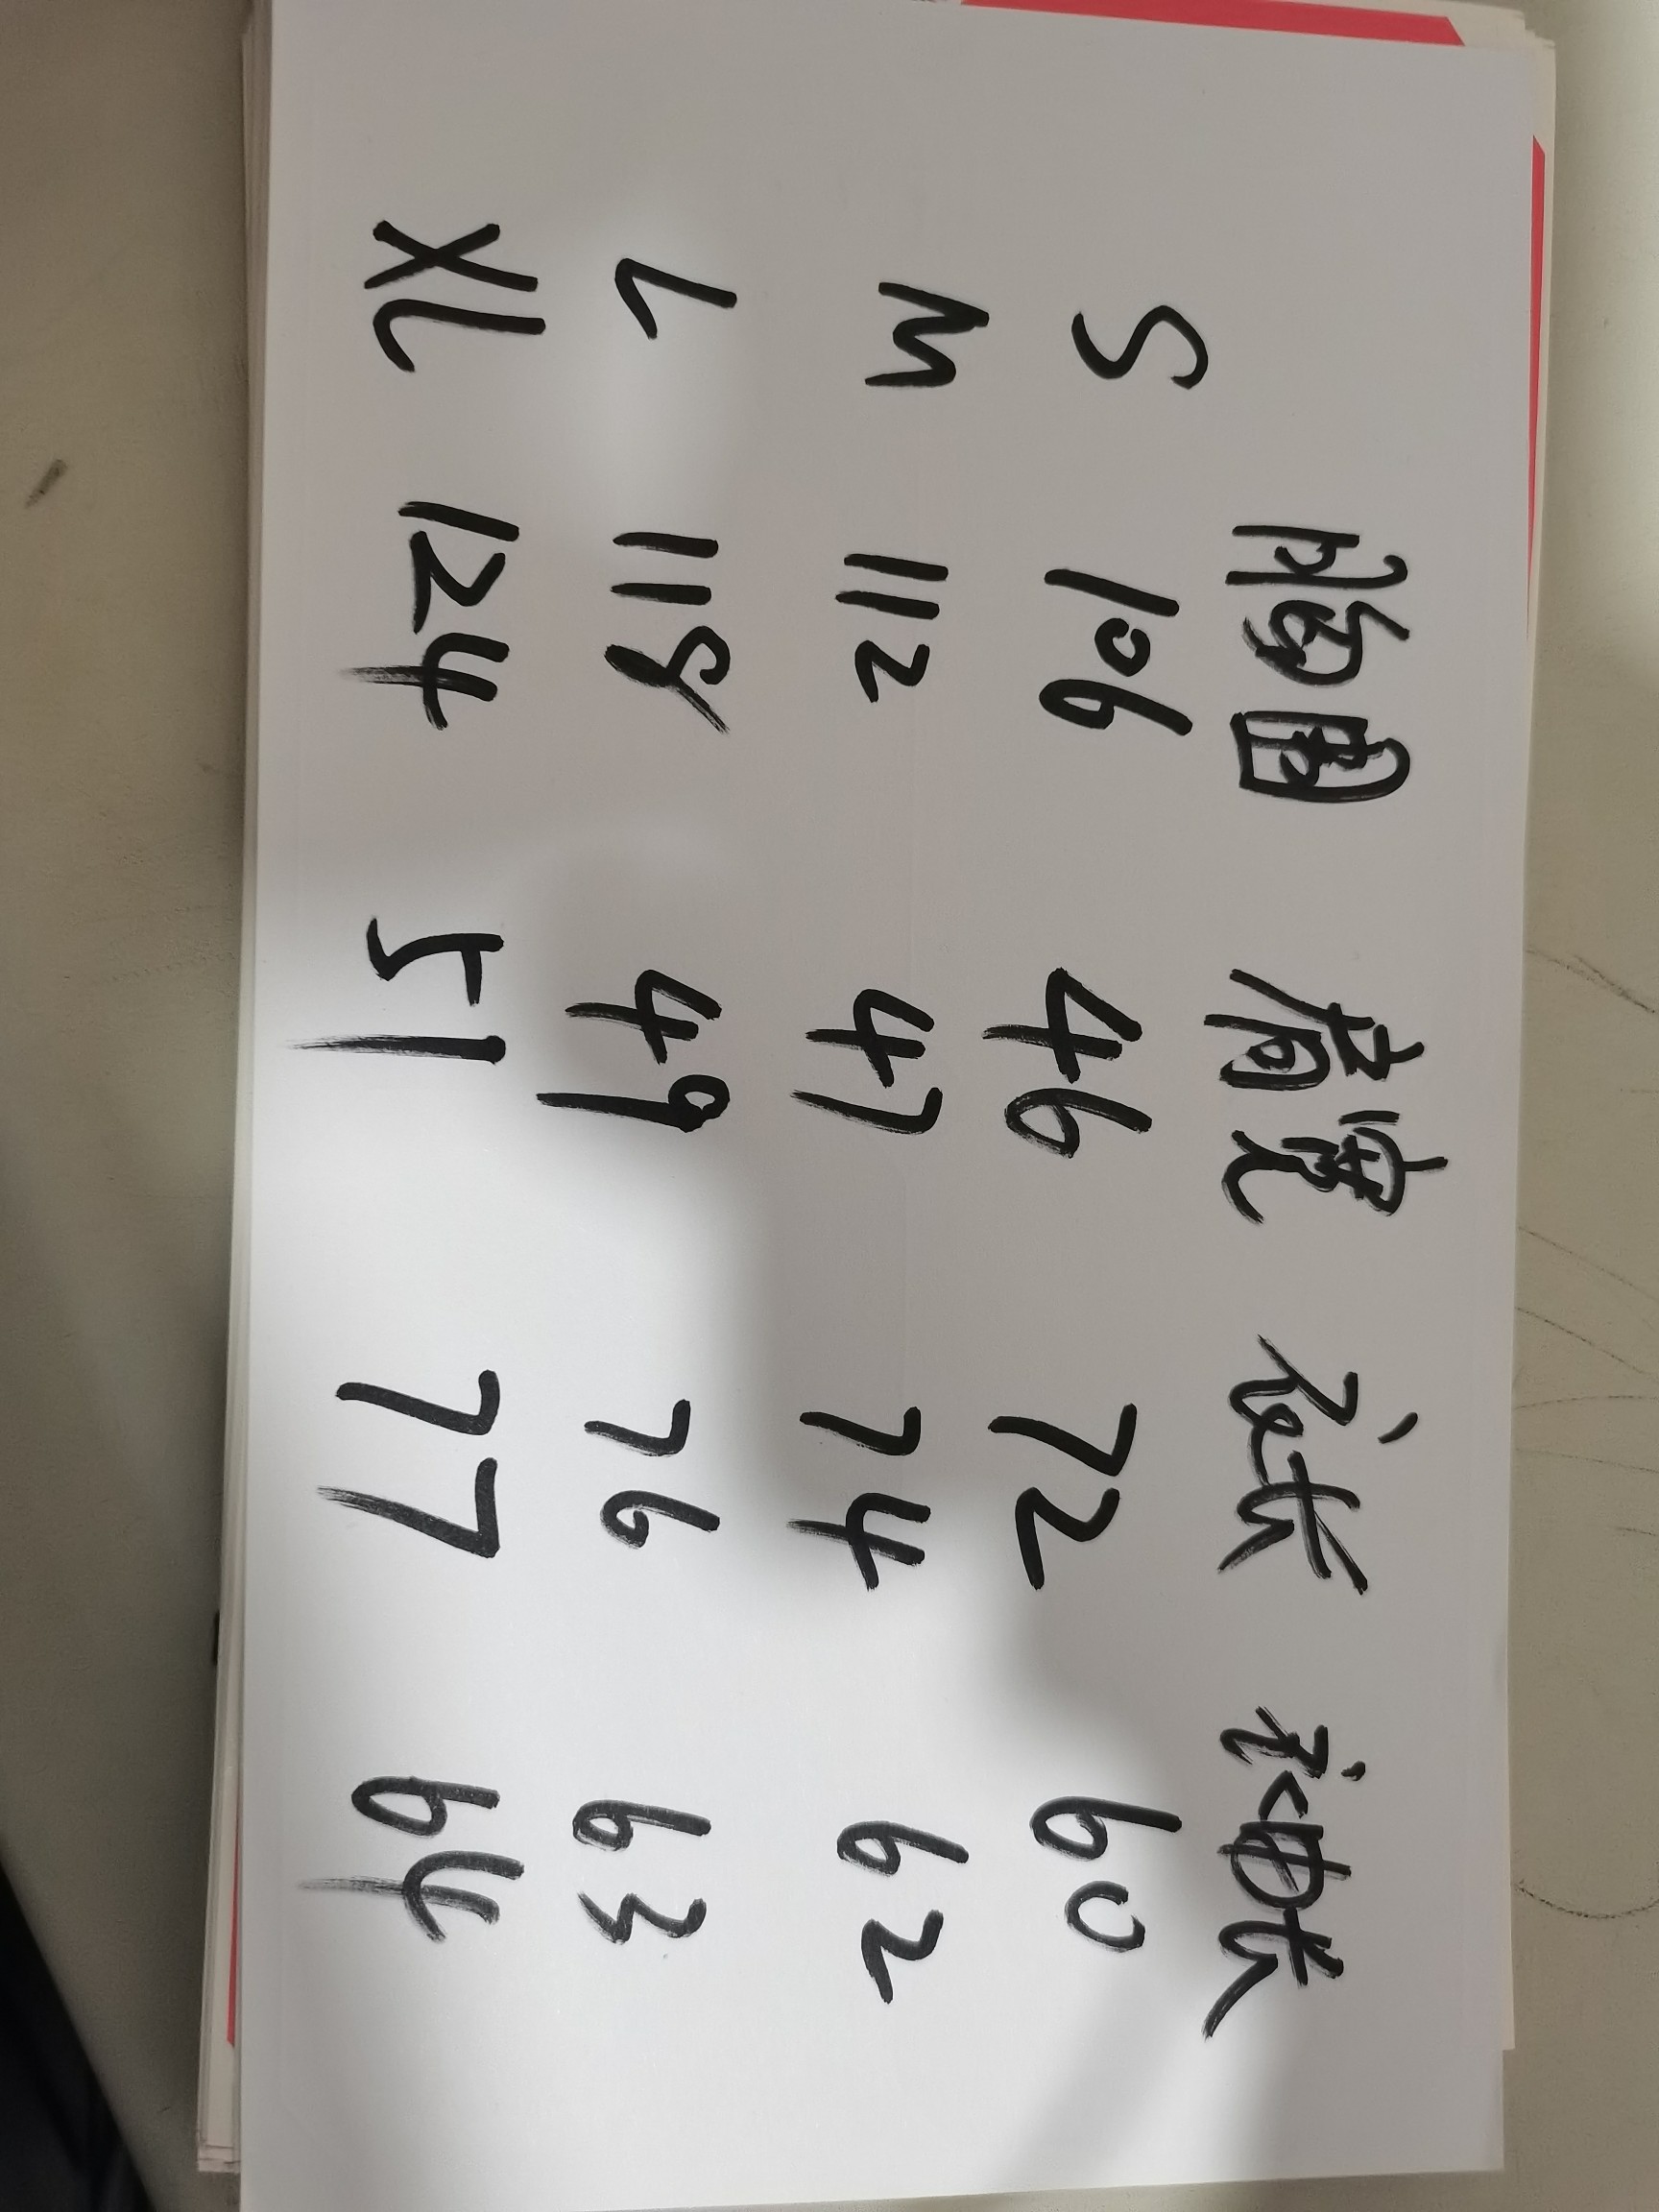 胸围 肩宽 衣长 袖长
S 106 46 72 60
M 112 47 74 62
L 118 49 76 63
XL 124 51 77 64